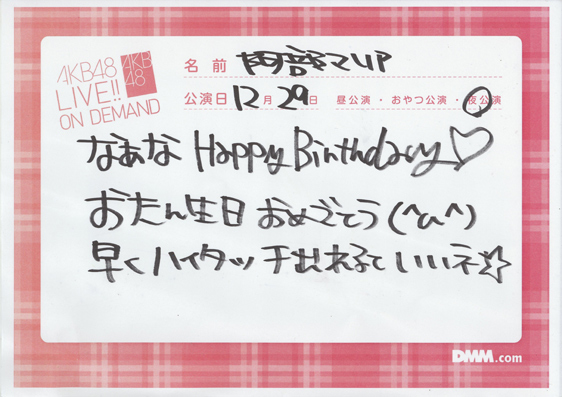 AKB48
LIVE!!
ON DEMAND
AKB
48
名前 阿部マリア
公演日 12月29日 昼公演・おやつ公演・夜公演
なぁな Happy Birthday♡
おたん生日 おめでとう(^u^)
早くハイタッチ出れるといいネ☆
DMM.com